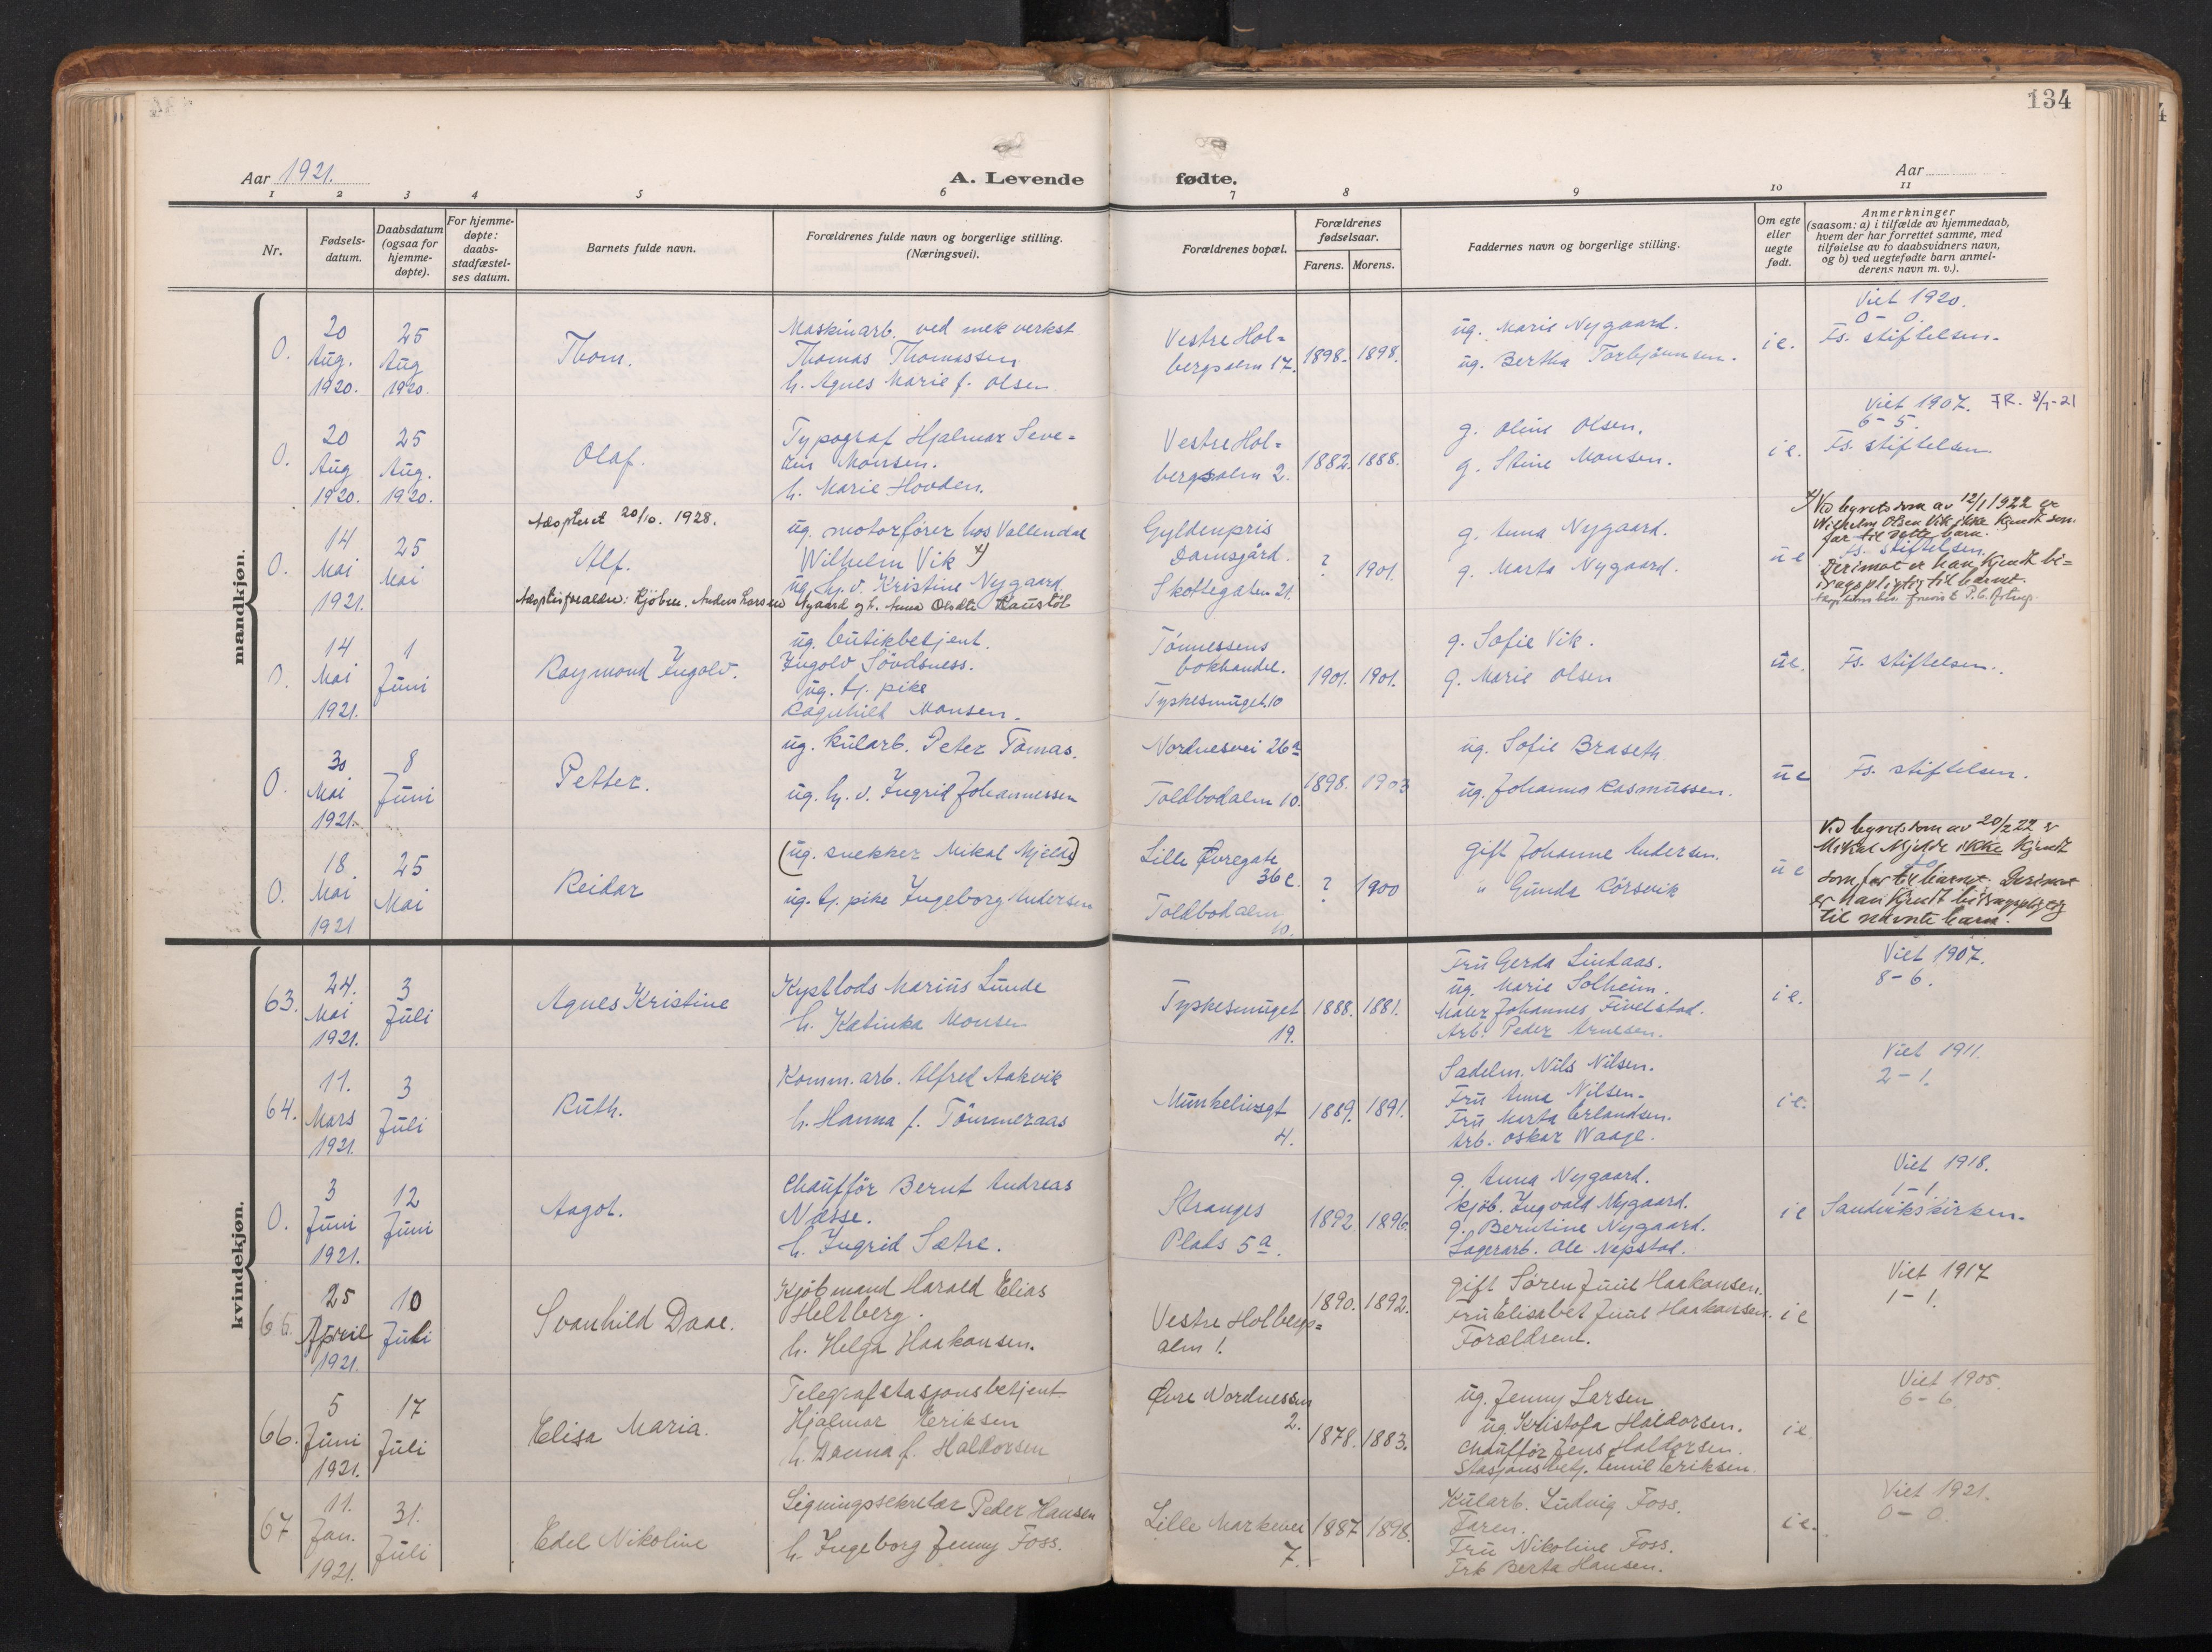 134
Aar 1921.
A. Levende fødte.
Aar
1 2 3 4 5 6 7 8 9 10 11
Nr.
Fødsels-
datum.
Daabsdatum
(ogsaa for
hjemme-
døpte).
For hjemme-
døpte:
daabs-
stadfæstel-
ses datum.
Barnets fulde navn.
Forældrenes fulde navn og borgerlige stilling.
(Næringsvei).
Forældrenes bopæl.
Forældrenes
fødselsaar.
Farens. Morens.
Faddernes navn og borgerlige stilling.
Om egte
eller
uegte
født.
Anmerkninger
(saasom: a) i tilfælde av hjemmedaab,
hvem der har forrettet samme, med
tilføielse av to daabsvidners navn,
og b) ved uegtefødte barn anmel-
derens navn m. v.).
mandkjøn.
0.
20
Aug.
1920.
25
Aug
1920.
Thom.
Maskinarb. ved mek verkst
Thomas Thomassen
h. Agnes Marie f. Olsen
Vestre Hol=
bergsalm 17.
1898. 1898.
ug. Marie Nygaard.
ug. Bertha Torbjörnsen.
ie.
Viet 1920.
0-0.
Fs. stiftelsen.
0.
20
Aug
1920.
25
Aug.
1920.
Olaf.
Typograf Hjalmar Seve=
rin Monsen.
h. Marie Hovden.
Vestre Hol=
bergsalm 2.
1882. 1888.
g. Oline Olsen.
g. Stine Monsen.
ie.
Viet 1907. FR. 8/1-21
6-5.
Fs. stiftelsen
0.
14
Mai
1921.
25
Mai
Adopteret 20/10. 1928.
Alf.
Adoptivforældre: Kjøbm. Anders Larsen Nygaard og h. Anna Olsdtr. Haustöl
ug. motorfører hos Vallendal
Wilhelm Vik x)
ug. hj. v. Kristine Nygaard
Gyldenpris
Damsgård.
Skottegaten 21.
? 1901.
g. Anna Nygaard.
g. Marta Nygaard.
ue
x) Ved byretsdom av 12/1 1922 er
Wilhelm Olsen Vik ikke kjendt som
far til dette barn.
Fs. stiftelsen.
Derimot er han kjendt bi=
dragspligtig til barnet.
0.
14
Mai
1921.
1
Juni
Raymond Ingolv.
ug. butikbetjent.
Ingolv Sövdsness.
ug. tj. pike
Ragnhild Monsen.
Tönnessens
bokhandel.
Tyskesmuget. 10
1901. 1901.
g. Sofie Vik.
g. Marie Olsen
ue.
Fs. stiftelsen.
0.
30
Mai
1921.
8
Juni
Petter.
ug. kularb. Peter Tomas.
ug. hj. v. Ingrid Johannessen
Nordnesvei 26a
Toldbodalm 10.
1898. 1903
ug. Sofie Braseth
ug. Johanna Rasmussen.
ue
Fs. stiftelsen.
0.
18.
Mai
1921
25
Mai
Reidar
(ug. snekker Mikal Mjelde)
ug. tj. pike Ingeborg Andersen
Lille Øvregate
36c.
Toldbodalm
10.
? 1900
gift Johanne Andersen.
" Gunda Rörsvik
ue
Ved byretsdom av 20/2 22 er
Mikal Mjelde ikke kjendt
som far til barnet. Derimot
er han kjendt bidragspligtig
til nævnte barn.
kvindekjøn.
63.
24.
Mai
1921.
3
Juli
Agnes Kristine
Kystlods Marius Lunde
h. Katinka Monsen
Tyskesmuget
19.
1888. 1881.
Fru Gerda Lindaas.
ug. Marie Solheim.
Maler Johannes Fivelstad.
Arb. Peder Arnesen.
ie.
Viet 1907.
8-6.
64.
11.
Mars
1921.
3
Juli
Ruth.
Komm. arb. Alfred Aakvik
h. Hanna f. Tömmeraas
Munkelivsgt
4.
1889. 1891.
Sadelm. Nils Nilsen.
Fru Anna Nilsen.
Fru Marta Erlandsen.
Arb. Oskar Waage.
ie.
Viet 1911.
2-1.
0.
3
Juni
1921.
12
Juni
Aagot.
Chauffør Bernt Andreas
Næsse.
h. Ingrid Sætre.
Stranges
Plads 5a.
1892. 1896.
g. Anna Nygaard.
kjöb. Ingvald Nygaard.
g. Berntine Nygaard.
Lagerarb. Ole Nepstad.
ie
Viet 1918.
1-1.
Sandvikskirken.
65.
25
April
1921.
10
Juli
Svanhild Daae.
Kjöbmand Harald Elias
Heltberg.
h. Helga Haakonsen.
Vestre Holbergs=
alm 1.
1890. 1892.
gift Sören Juul Haakonsen.
Fru Elisabet Juul Haakonsen.
Forældrene.
ie
Viet 1917
1-1.
66.
5
Juni
1921.
17
Juli
Elisa Maria.
Telegrafstasjonsbetjent
Hjalmar Eriksen
h. Danna f. Haldorsen
Øvre Nordnessmu
2.
1878. 1883.
ug. Jenny Larsen
ug. Kristofa Haldorsen.
Chauffør Jens Haldorsen.
Stasjonsbetj. Emil Eriksen.
ie
Viet 1905.
6-6.
67
11.
Jan.
1921.
31.
Juli
Edel Nikoline
Ligningssekretær Peder Hansen
h. Ingeborg Jenny Foss.
Lille Markevei
7.
1887. 1898.
Kularb. Ludvig Foss.
Faren.
Fru Nikoline Foss.
Frk Berta Hansen.
ie.
Viet 1921.
0-0.